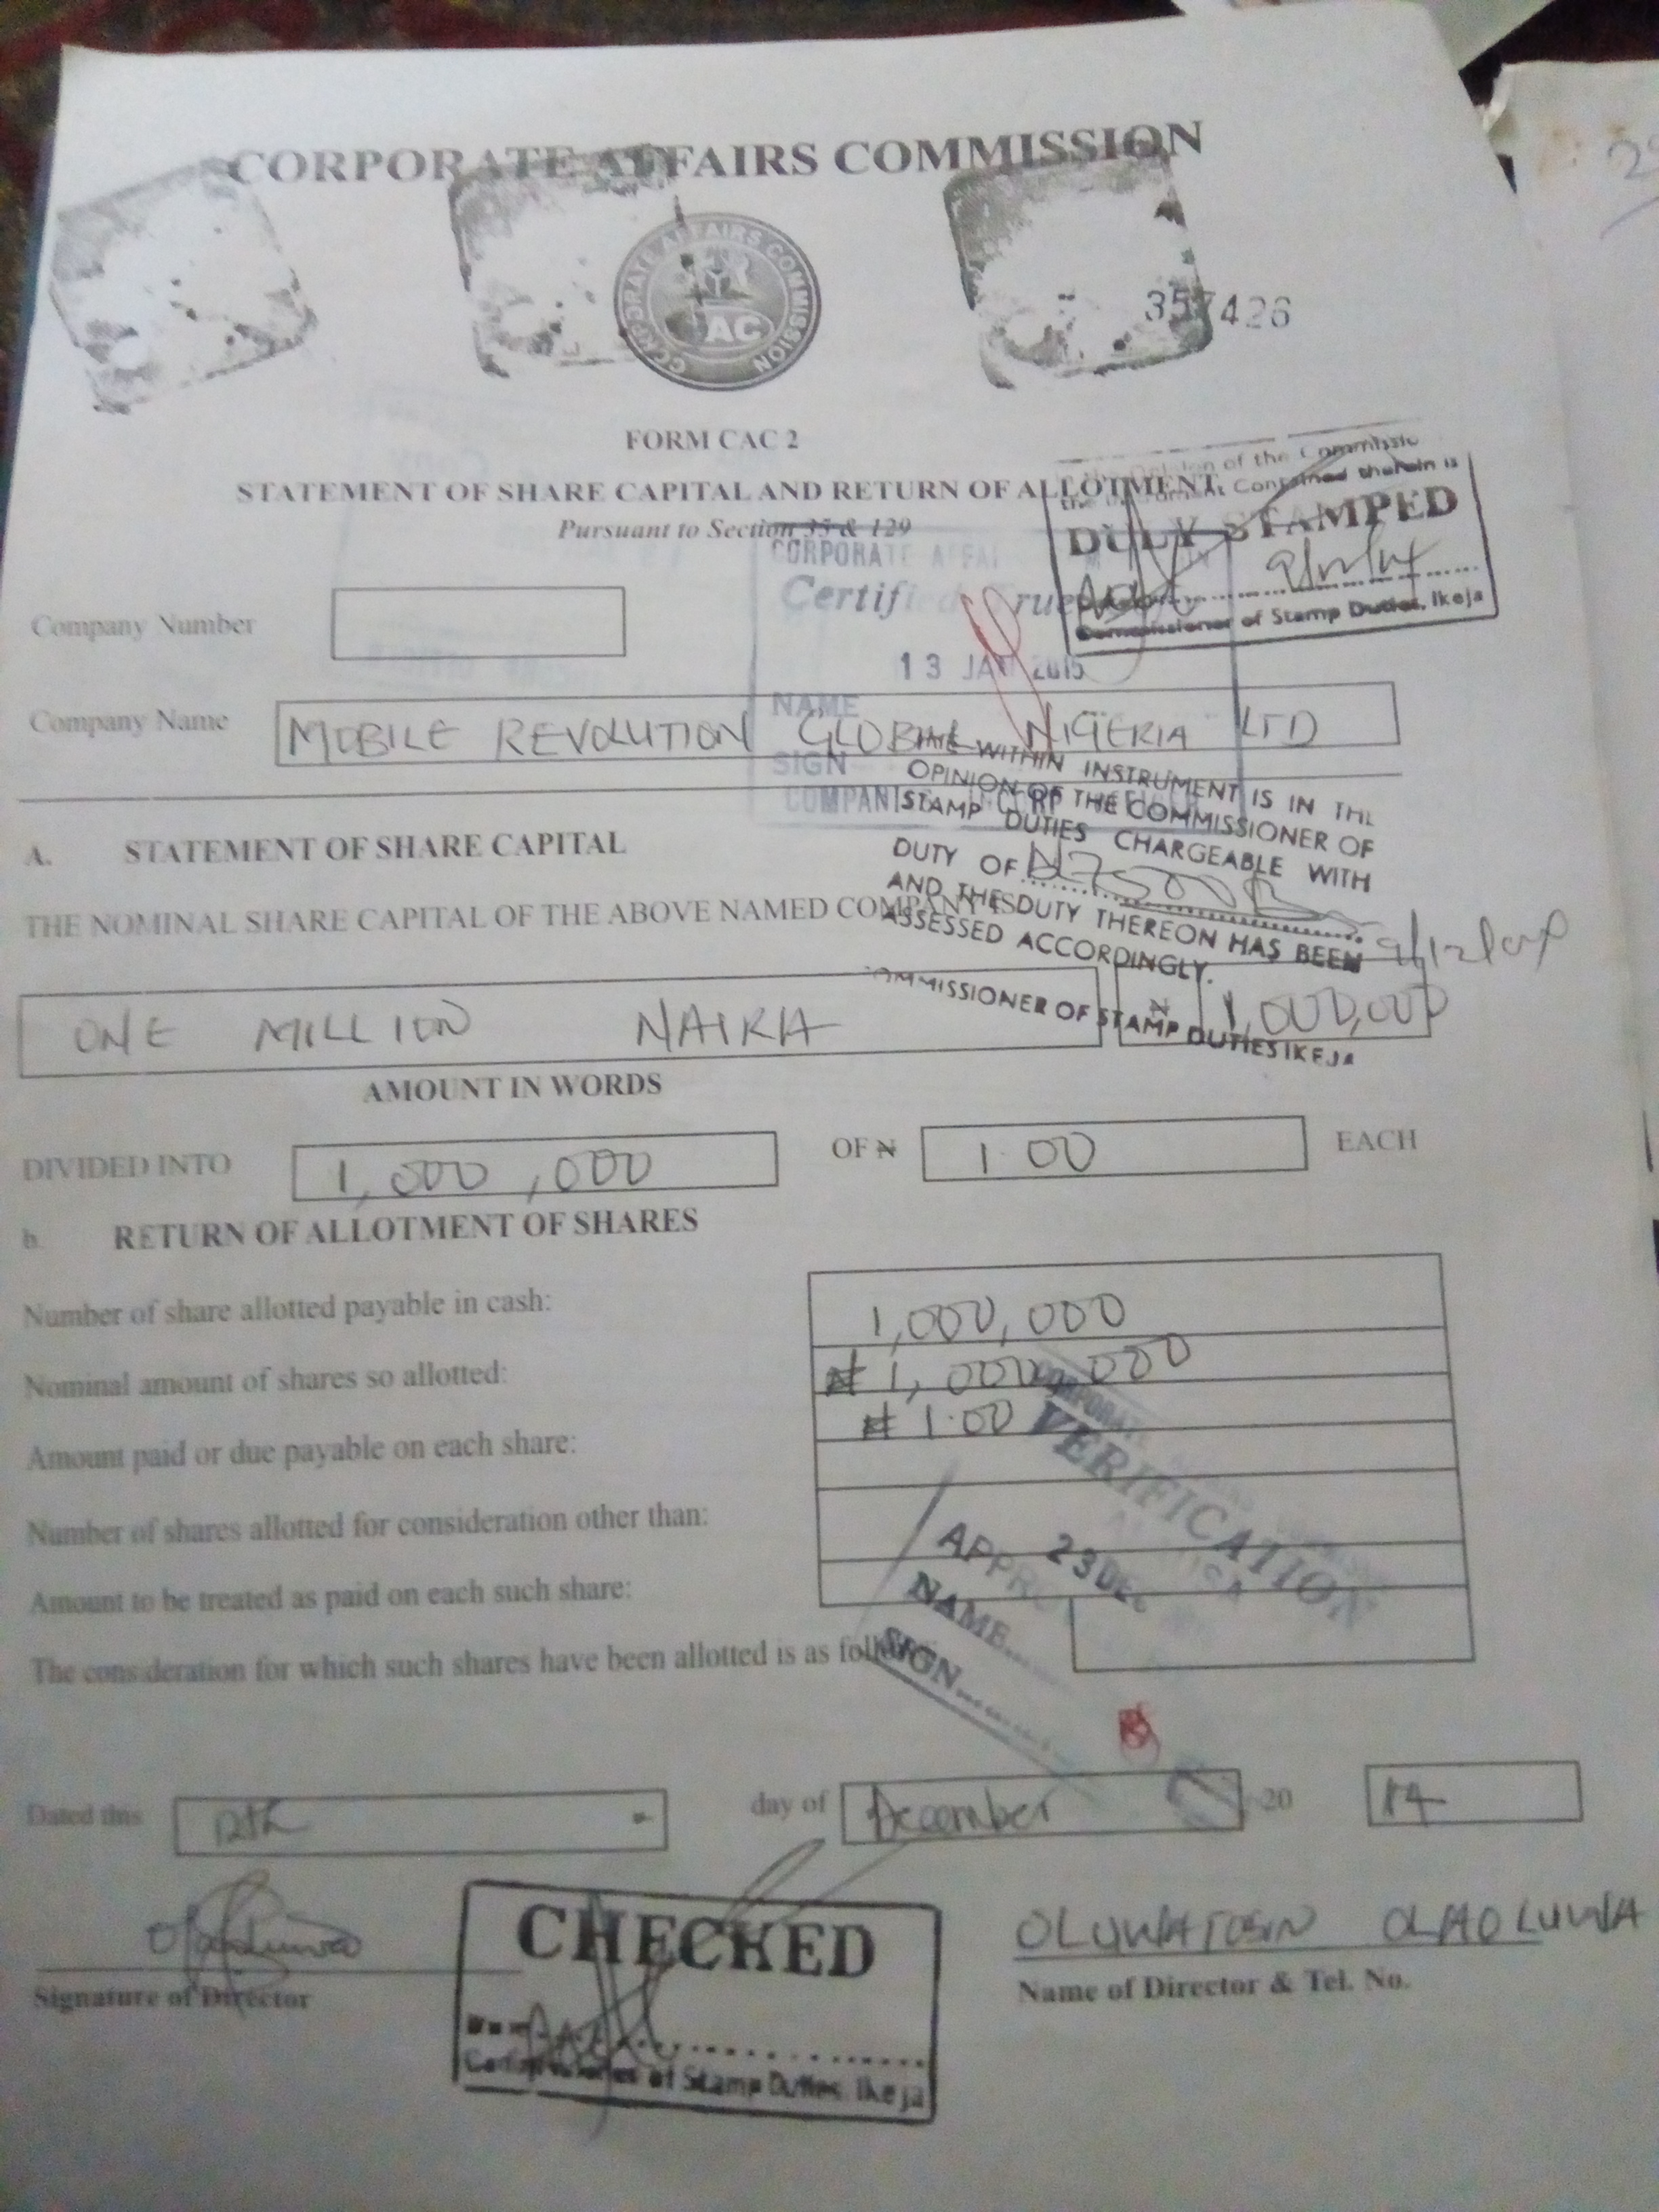 CORPORATE AFFAIRS COMMISSION
CORPORATE AFFAIRS COMMISSION
CAC
357426
FORM CAC 2
STATEMENT OF SHARE CAPITAL AND RETURN OF ALLOTMENT
Pursuant to Section 35 & 129
of the Commissio
Contained therein is
DULY STAMPED
9/12/14
Commissioner of Stamp Duties, Ikeja
CORPORATE AFFAI
Certified True
13 JAN 2015
NAME
SIGN
Company Number
Company Name MOBILE REVOLUTION GLOBAL NIGERIA LTD
THE WITHIN INSTRUMENT IS IN THE
OPINION OF THE COMMISSIONER OF
STAMP DUTIES CHARGEABLE WITH
DUTY OF
AND THE DUTY THEREON HAS BEEN
ASSESSED ACCORDINGLY.
COMMISSIONER OF STAMP DUTIES IKEJA
A. STATEMENT OF SHARE CAPITAL
THE NOMINAL SHARE CAPITAL OF THE ABOVE NAMED COMPANY IS
ONE MILLION NAIRA ₦ 1,000,000
AMOUNT IN WORDS
DIVIDED INTO 1,000,000 OF ₦ 1.00 EACH
b. RETURN OF ALLOTMENT OF SHARES
Number of share allotted payable in cash: 1,000,000
Nominal amount of shares so allotted: ₦ 1,000,000
Amount paid or due payable on each share: ₦ 1.00
Number of shares allotted for consideration other than:
Amount to be treated as paid on each such share:
The consideration for which such shares have been allotted is as follows
VERIFICATION
23 DEC
NAME
SIGN
Dated this 12th day of December 20 14
CHECKED
Commissioner of Stamp Duties, Ikeja
OLUWATOSIN OLAOLUWA
Signature of Director Name of Director & Tel. No.